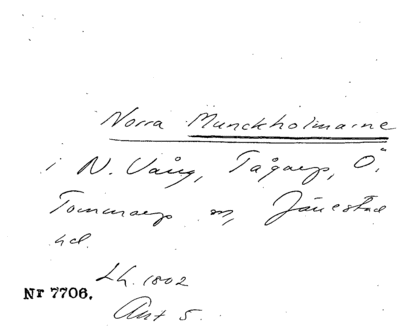 Norra Munckholmarne
i N. Vång, Tågarp, Ö.
Tommarps sn, Järrestad
hd.
Lh. 1802
Nr 7706.
Akt 5.